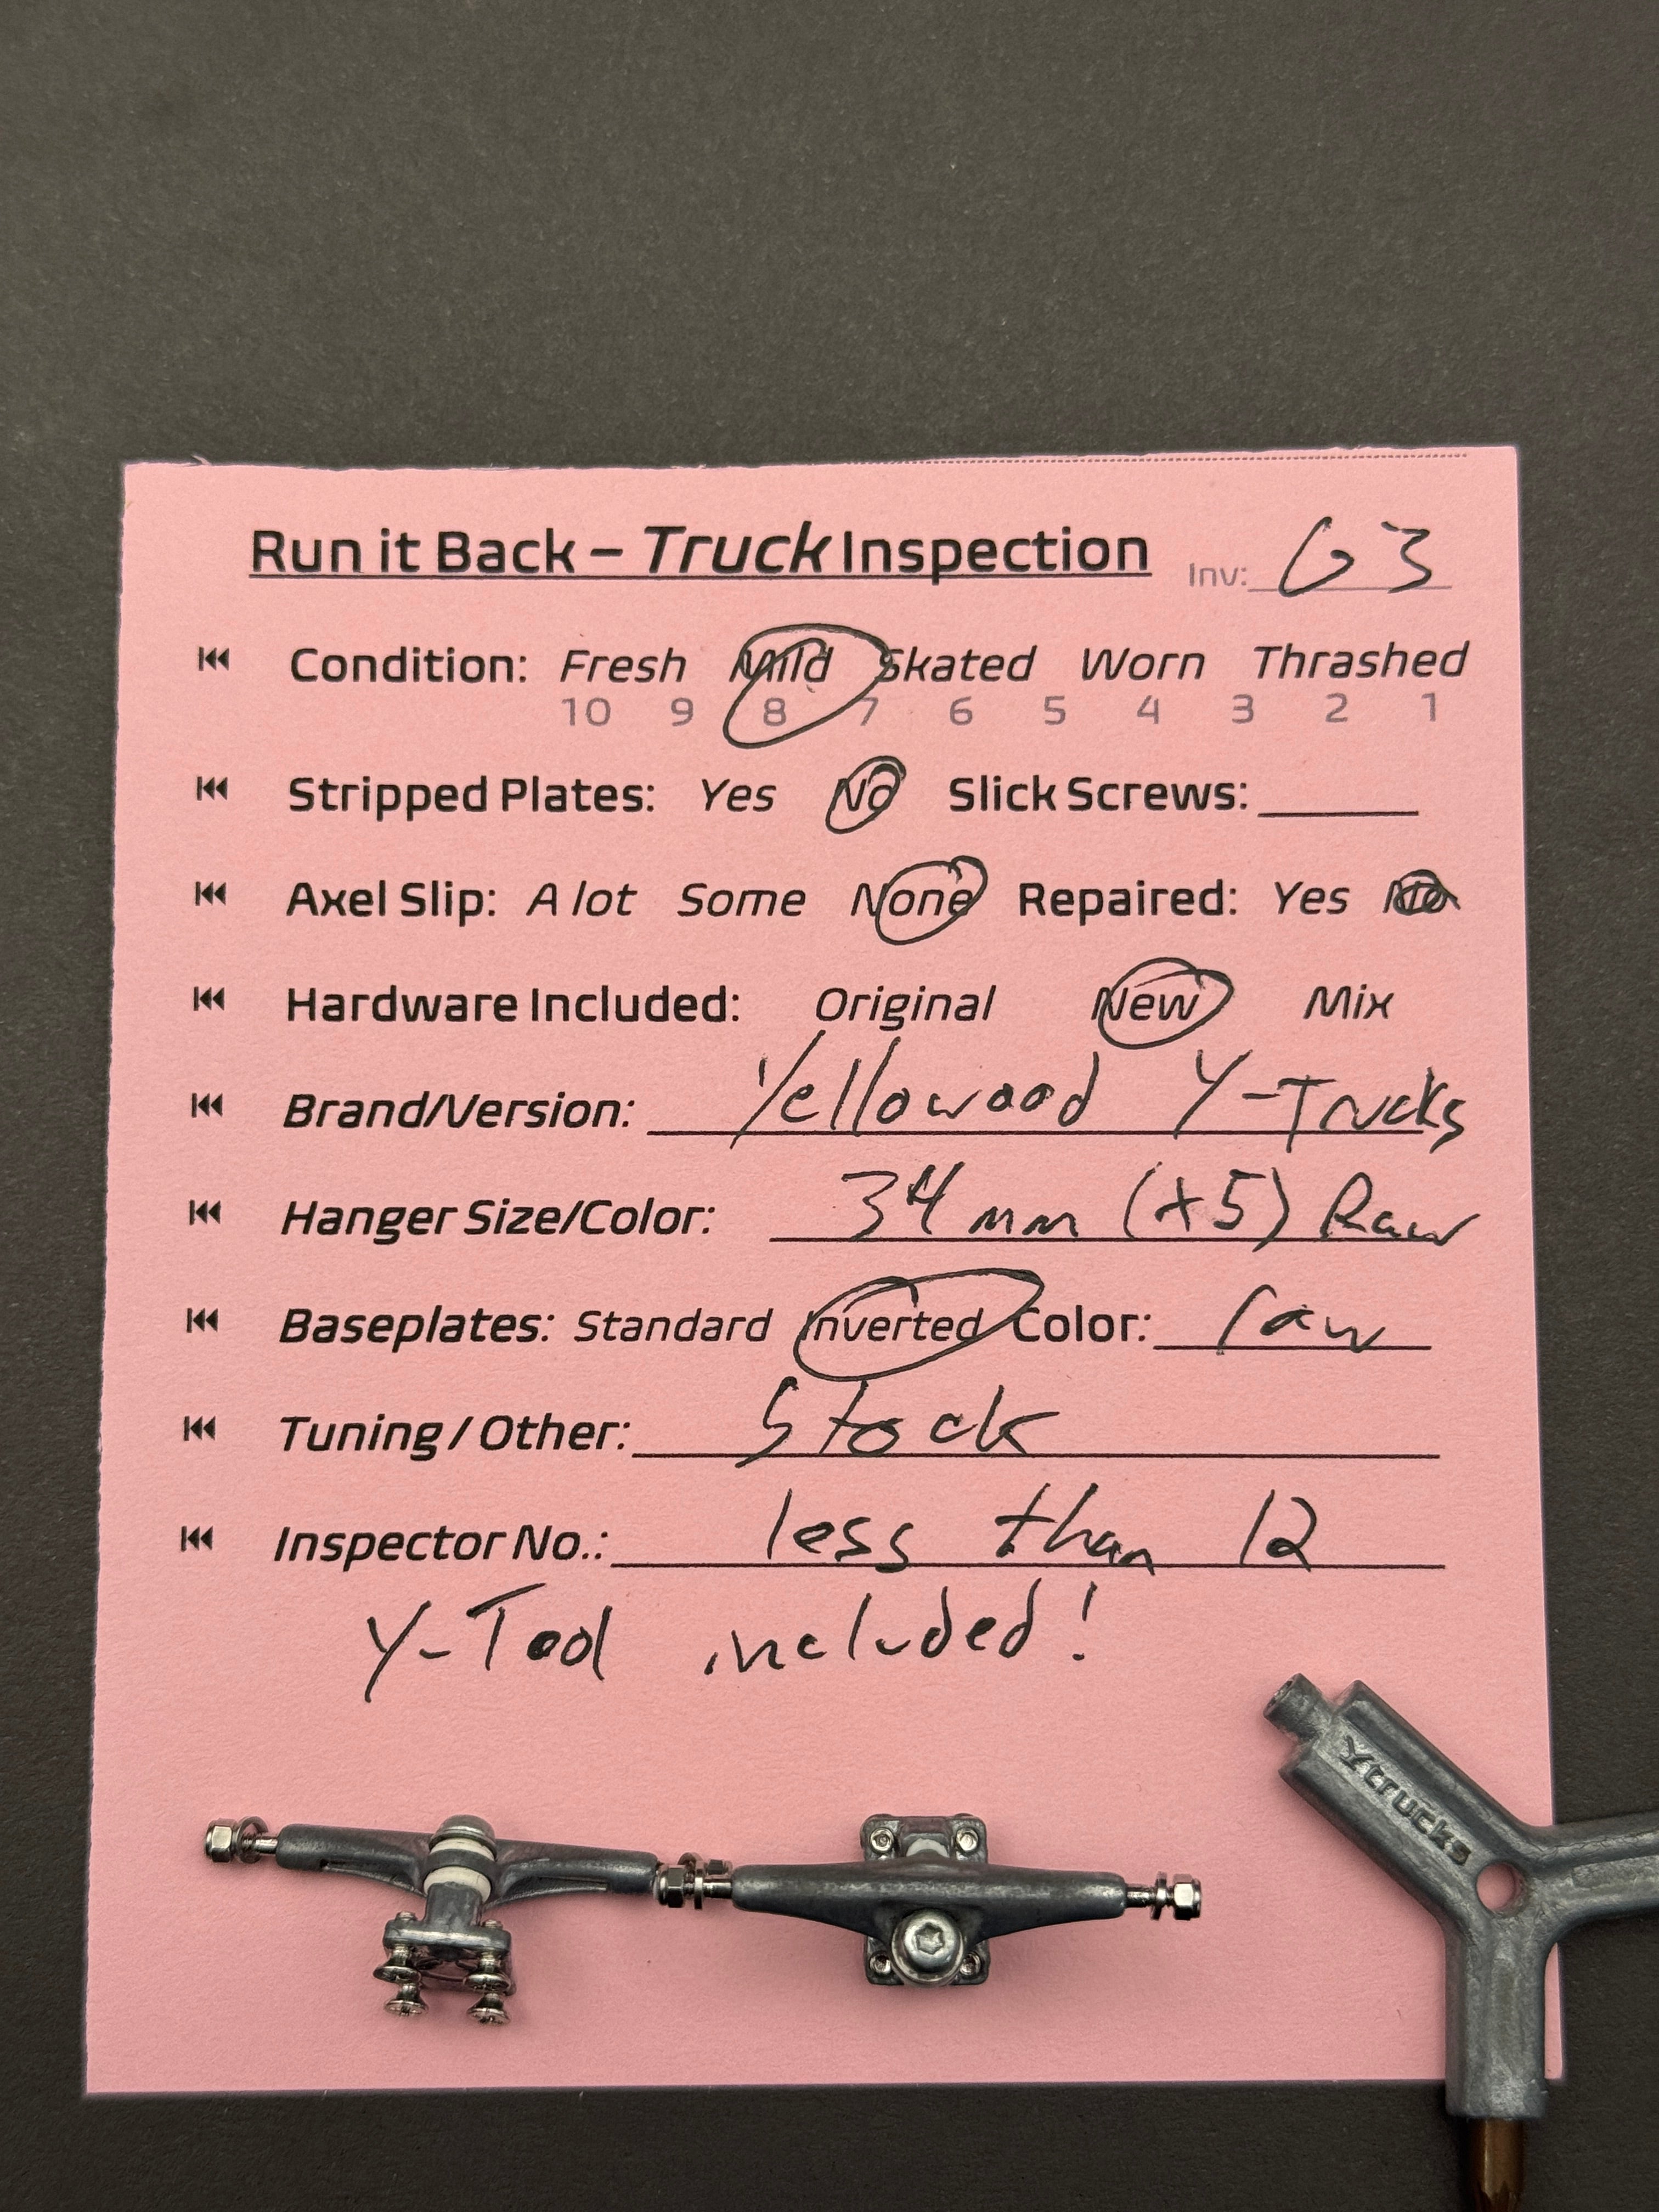 Run it Back – Truck Inspection Inv: G3
Condition: Fresh Mild Skated Worn Thrashed
10 9 8 7 6 5 4 3 2 1
Stripped Plates: Yes No Slick Screws:
Axel Slip: A lot Some None Repaired: Yes No
Hardware Included: Original New Mix
Brand/Version: Yellowood Y-Trucks
Hanger Size/Color: 34mm (x5) Raw
Baseplates: Standard Inverted Color: raw
Tuning / Other: Stock
Inspector No.: less than 12
Y-Tool included!
Ytrucks